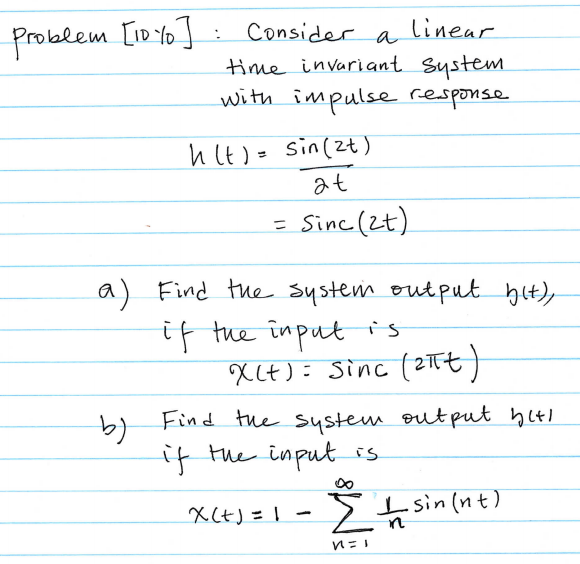 Problem [10%] : Consider a linear
time invariant system
with impulse response
h(t) = sin(2t)
2t
= sinc(2t)
a) Find the system output y(t),
if the input is
x(t) = sinc(2πt)
b) Find the system output y(t)
if the input is
∞
x(t) = 1 - ∑ 1/n sin(nt)
n=1